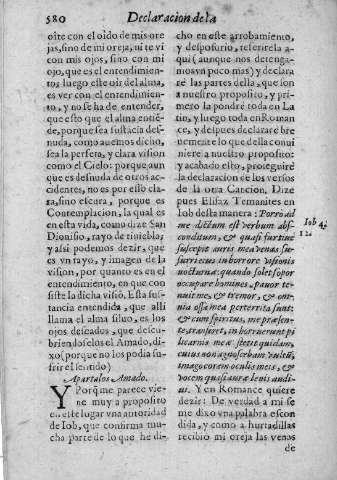 580 Declaracion de la
oîte con el oido de mis ore
jas, sino de mi oreja, ni te vi
con mis ojos, sino con mi
ojo, que es el entendimien-
to; luego este oir del alma,
es ver con el entendimien-
to, y no se ha de entender,
que esto que el alma entiẽ-
de, porque sea sustãcia des-
nuda, como auemos dicho,
sea la perfeta, y clara vision
como el Cielo: porque aun
que es desnuda de otros ac-
cidentes, no es por esso cla-
ra, sino escura, porque es
Contemplacion, la qual es
en esta vida, como dize San
Dionisio, rayo de tiniebla;
y assi podemos dezir, que
es vn rayo, y imagen de la
vision, por quanto es en el
entendimiento, en que con
siste la dicha visiõ. Esta sus-
tancia entendida, que alli
llama el alma siluo, es los
ojos deseados, que descu-
briendoselos el Amado, di-
xo (porque no los podia su-
frir el sentido)
Apartalos Amado.
Y Porq̃ me parece vie-
ne muy a proposito
en este lugar vna autoridad
de Iob, que confirma mu-
cha parte de lo que he di-
cho en este arrobamiento,
y desposorio, referirela a-
qui (aunque nos detenga-
mos vn poco mas) y declara
re las partes della, que son
a nuestro proposito, y pri-
mero la pondrè toda en La
tin, y luego toda en Roman
ce, y despues declararè bre
uemente lo que della conui
niere a nuestro proposito:
y acabado esto, proseguirè
la declaracion de los versos
de la otra Cancion. Dize
pues Elifaz Temanites en
Iob desta manera: Porrò ad
me dictum est verbum abs-
conditum, & quasi furtiuè
suscepit auris mea venas su-
surri eius in horrore visionis
nocturnæ: quando solet sopor
occupare homines, pauor te-
nuit me, & tremor, & om-
nia ossa mea perterrita sunt:
& cum spiritus, me præsen-
te, transiret, inhorruerunt pi
li carnis meæ: stetit quidam,
cuius non agnoscebam vultũ,
imago coram oculis meis, &
vocem quasi auræ lenis audi-
ui. Y en Romance quiere
dezir: De verdad a mi se
me dixo vna palabra escon
dida, y como a hurtadillas
recibiò mi oreja las venas
de
Iob 4.
12.